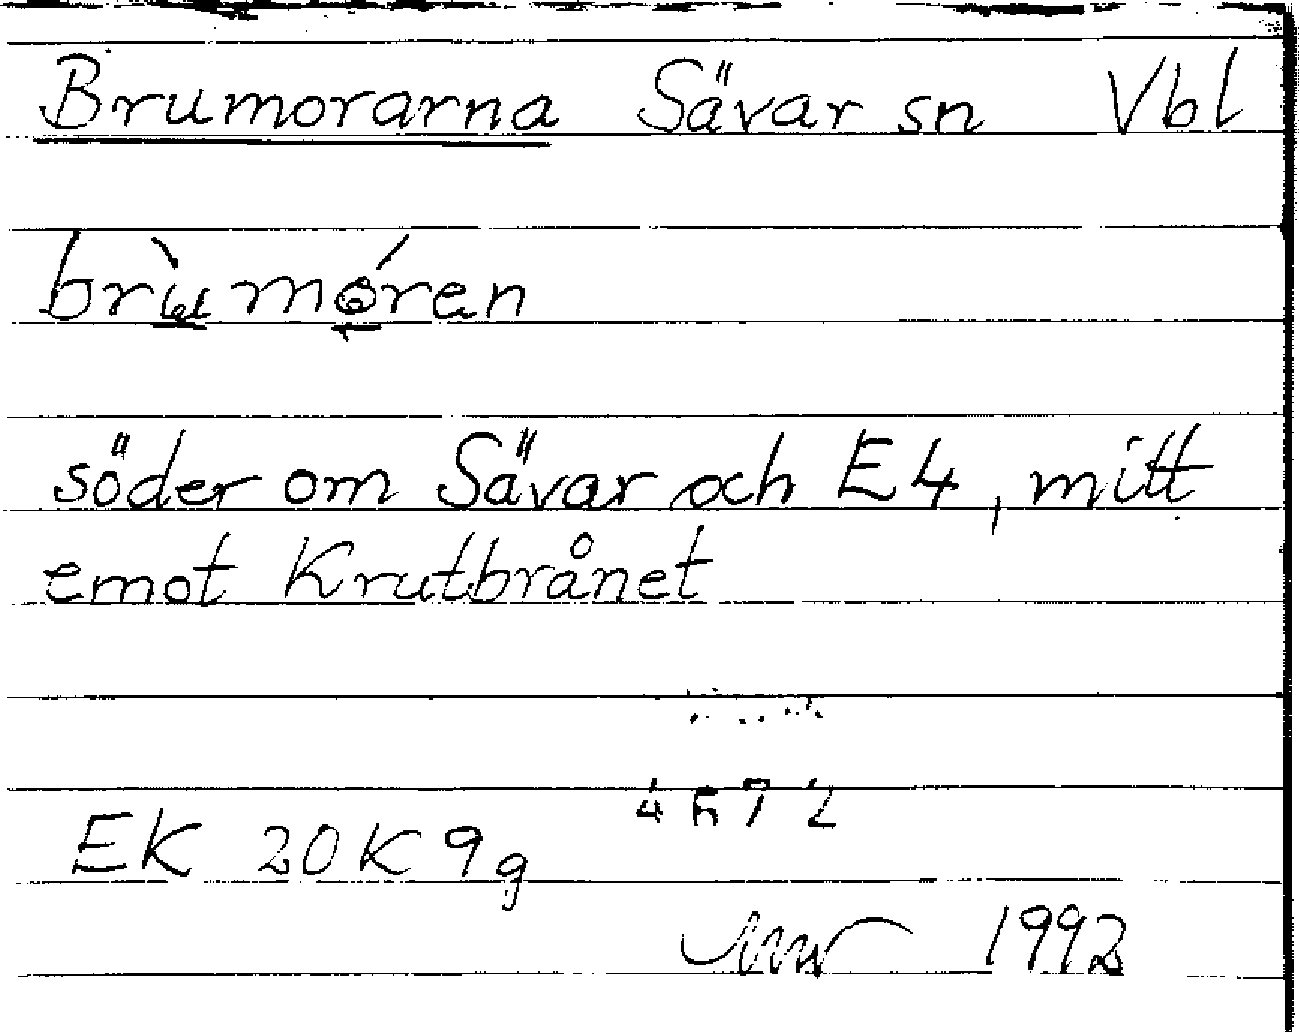 Brumorarna Sävar sn Vbl
söder om Sävar och E4, mitt
emot Krutbrånet
4572
EK 20K 9g
1992